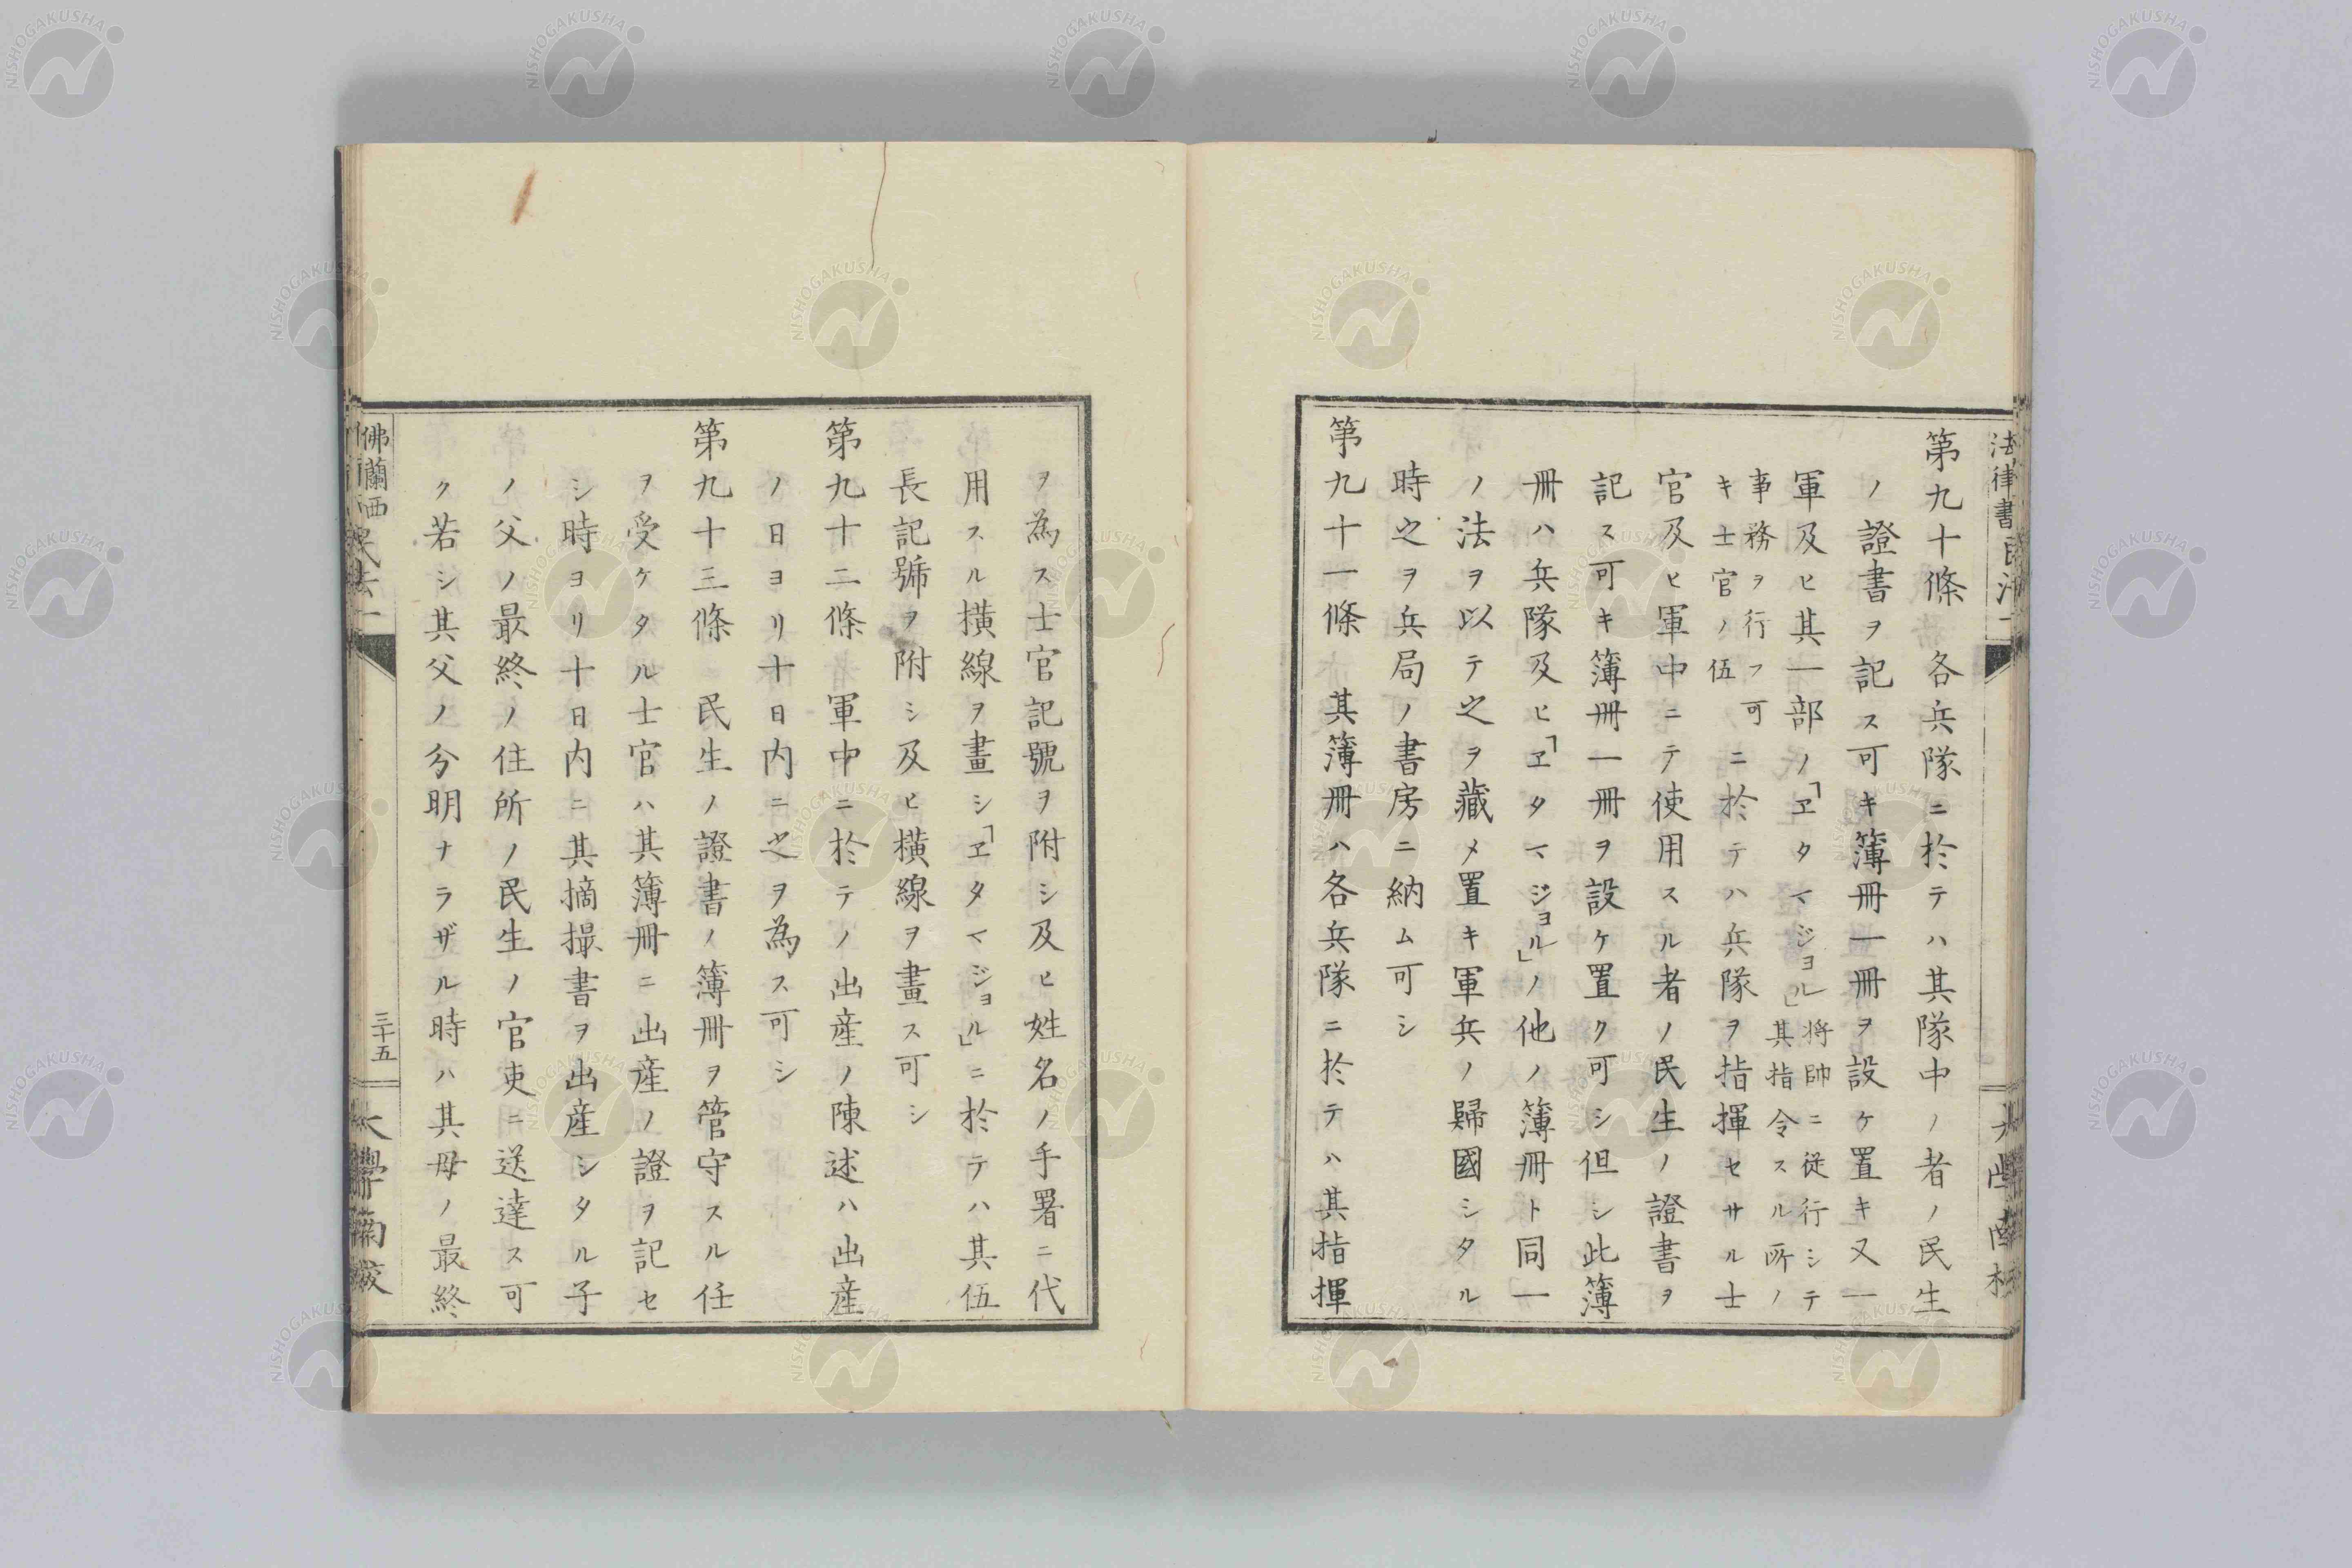 第九十條　各兵隊ニ於テハ其隊中ノ者ノ民生
ノ證書ヲ記ス可キ簿冊一冊ヲ設ケ置キ又一
軍及ヒ其一部ノ「ヱタマジョル」将帥ニ従行シテ其指令スル所ノ
事務ヲ行フ可キ士官ノ伍ニ於テハ兵隊ヲ指揮セサル士
官及ヒ軍中ニテ使用スル者ノ民生ノ證書ヲ
記ス可キ簿冊一冊ヲ設ケ置ク可シ但シ此簿
冊ハ兵隊及ヒ「ヱタマジョル」ノ他ノ簿冊ト同一
ノ法ヲ以テ之ヲ藏メ置キ軍兵ノ歸國シタル
時之ヲ兵局ノ書房ニ納ム可シ
第九十一條　其簿冊ハ各兵隊ニ於テハ其指揮
ヲ為ス士官記號ヲ附シ及ヒ姓名ノ手署ニ代
用スル横線ヲ畫シ「ヱタマジョル」ニ於テハ其伍
長記號ヲ附シ及ヒ横線ヲ畫ス可シ
第九十二條　軍中ニ於テノ出産ノ陳述ハ出産
ノ日ヨリ十日内ニ之ヲ為ス可シ
第九十三條　民生ノ證書ノ簿冊ヲ管守スル任
ヲ受ケタル士官ハ其簿冊ニ出産ノ證ヲ記セ
シ時ヨリ十日内ニ其摘撮書ヲ出産シタル子
ノ父ノ最終ノ住所ノ民生ノ官吏ニ送達ス可
ク若シ其父ノ分明ナラザル時ハ其母ノ最終
佛蘭西
三十五
法律書
NISHOGAKUSHA